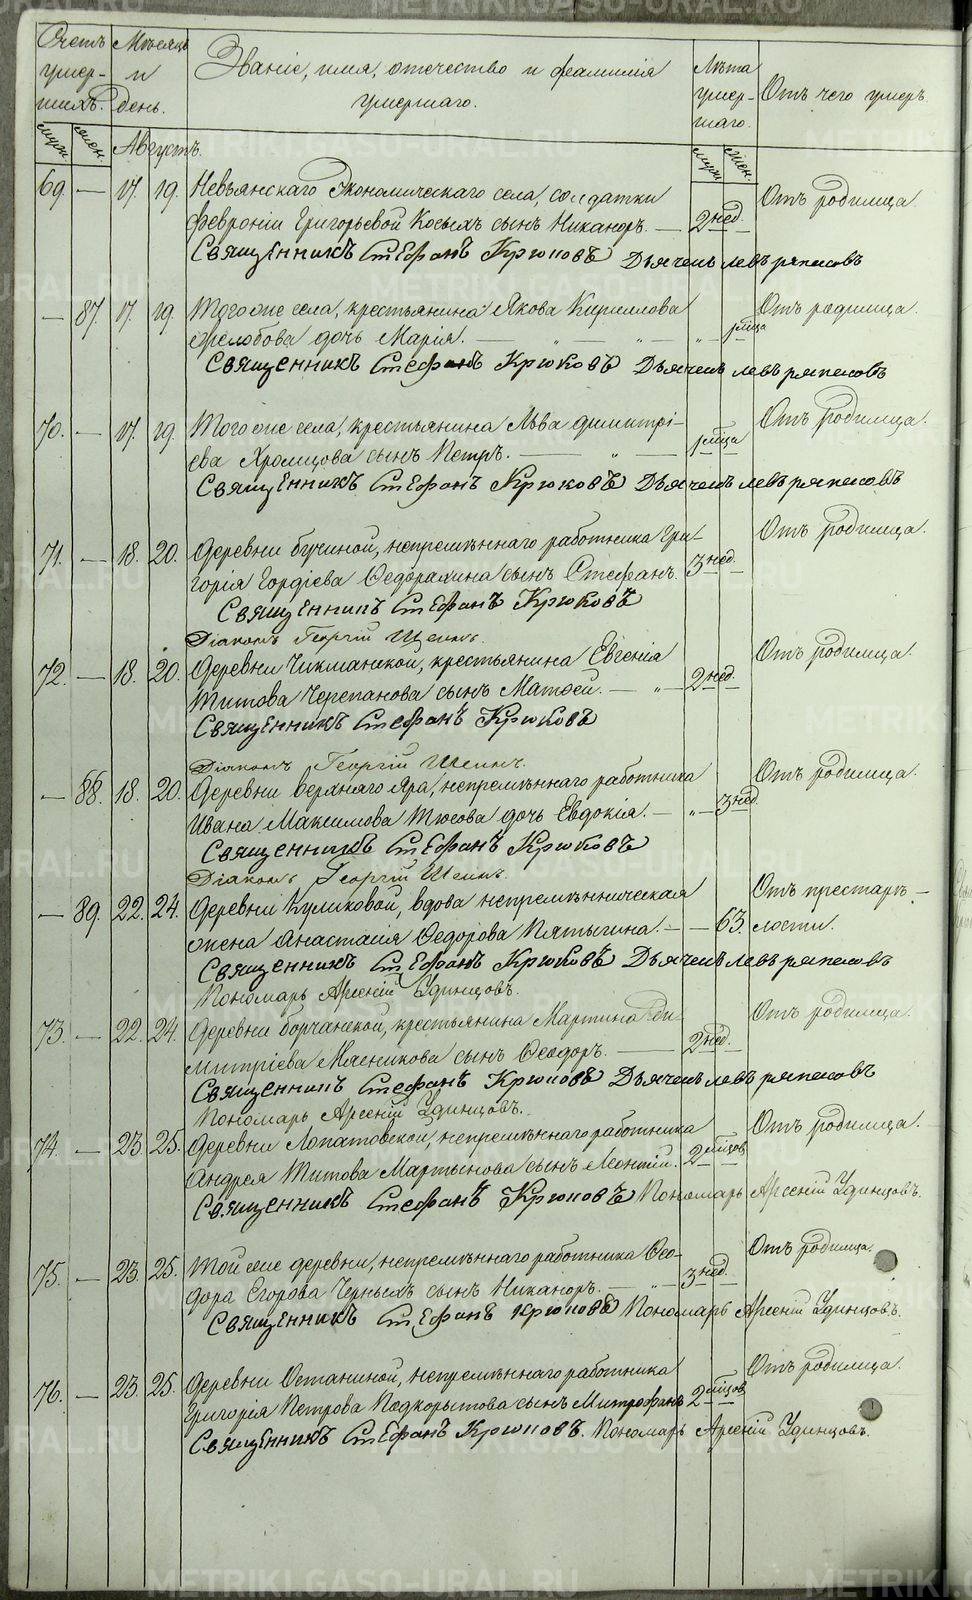 Счетъ умер- шихъ. Мѣсяцъ и день. Званіе, имя, отечество и фамилія умершаго. Лѣта умер- шаго. Отъ чего умеръ.
муж. жен. Августъ. муж. жен.
69. — 17. 19. Невьянскаго Экономическаго села, солдатки Отъ родимца.
Февроніи Григорьевой Косыхъ сынъ Никаноръ. — 2 нед.
Священникъ Стефанъ Крюковъ Дьячекъ Левъ Ряпасовъ
— 87. 17. 19. Тогоже села, крестьянина Якова Кириллова Отъ родимца.
Желобова дочь Марія. — „ — „ — „ — 1 мѣца
Священникъ Стефанъ Крюковъ Дьячекъ Левъ Ряпасовъ
70. — 17. 19. Тогоже села, крестьянина Льва Димитрі- Отъ родимца.
ева Храмцова сынъ Петръ. — „ — 1 мѣца
Священникъ Стефанъ Крюковъ Дьячекъ Левъ Ряпасовъ
71. — 18. 20. Деревни Бучиной, непремѣннаго работника Гри- Отъ родимца.
горія Гордіева Ѳедорахина сынъ Стефанъ. 3 нед.
Священникъ Стефанъ Крюковъ
Діаконъ Георгій
72. — 18. 20. Деревни Чикманской, крестьянина Евгенія Отъ родимца.
Титова Черепанова сынъ Матѳей. — „ — 2 нед.
Священникъ Стефанъ Крюковъ
Діаконъ Георгій
— 88. 18. 20. Деревни Верхняго Яра, непремѣннаго работника Отъ родимца.
Ивана Максимова Тюсова дочь Евдокія. — „ — 3 нед.
Священникъ Стефанъ Крюковъ
Діаконъ Георгій
— 89. 22. 24. Деревни Куликовой, вдова непремѣнническая Отъ престарѣ-
жена Анастасія Ѳедорова Пятыгина. — — 63. лости.
Священникъ Стефанъ Крюковъ Дьячекъ Левъ Ряпасовъ
Пономарь Арсеній Удинцовъ.
73. — 22. 24. Деревни Борчанской, крестьянина Мартина Ди- Отъ родимца.
митріева Мясникова сынъ Ѳеодоръ. — 2 нед.
Священникъ Стефанъ Крюковъ Дьячекъ Левъ Ряпасовъ
Пономарь Арсеній Удинцовъ.
74. — 23. 25. Деревни Лопатовской, непремѣннаго работника Отъ родимца.
Андрея Титова Мартынова сынъ Леонтій. 2 мѣцов
Священникъ Стефанъ Крюковъ Пономарь Арсеній Удинцовъ.
75. — 23. 25. Той же деревни, непремѣннаго работника Ѳео- Отъ родимца.
дора Егорова Черныхъ сынъ Никаноръ. — „ — 3 нед.
Священникъ Стефанъ Крюковъ Пономарь Арсеній Удинцовъ.
76. — 23. 25. Деревни Останиной, непремѣннаго работника Отъ родимца.
Григорія Петрова Подкорытова сынъ Митрофанъ 2 мѣцов
Священникъ Стефанъ Крюковъ. Пономарь Арсеній Удинцовъ.
METRIKI.GASO-URAL.RU